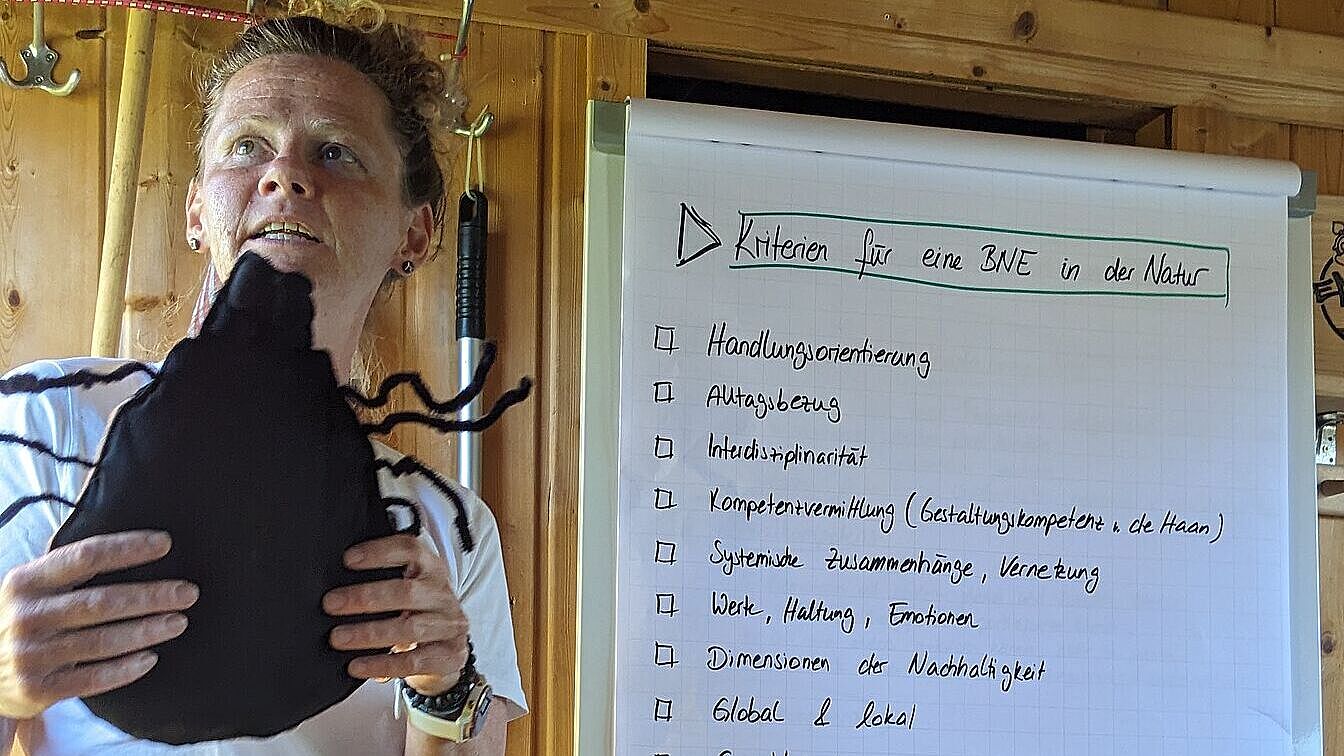 Kriterien für eine BNE in der Natur
Handlungsorientierung
Alltagsbezug
Interdisziplinarität
Kompetenzvermittlung (Gestaltungskompetenz n. de Haan)
Systemische Zusammenhänge, Vernetzung
Werte, Haltung, Emotionen
Dimensionen der Nachhaltigkeit
Global & lokal